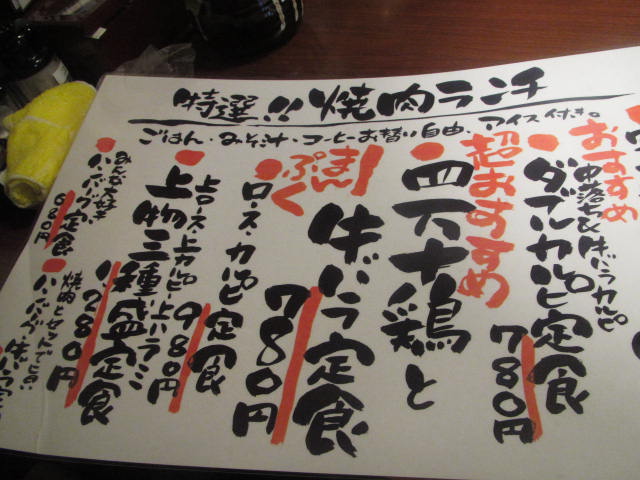 特選!!焼肉ランチ
ごはん・みそ汁・コーヒーお替り自由、アイス付き。
おすすめ
中落ち&牛バラカルビ
ダブルカルビ定食
780円
超おすすめ
四万十鶏と
牛バラ定食
780円
まんぷく
ロース・カルビ定食
980円
上ロース・上カルビ・上ハラミ
上物三種盛定食
1,280円
みんな大好き
ハンバーグ定食
680円
焼肉とせんでとの
ハンバーグ&牛バラ定食